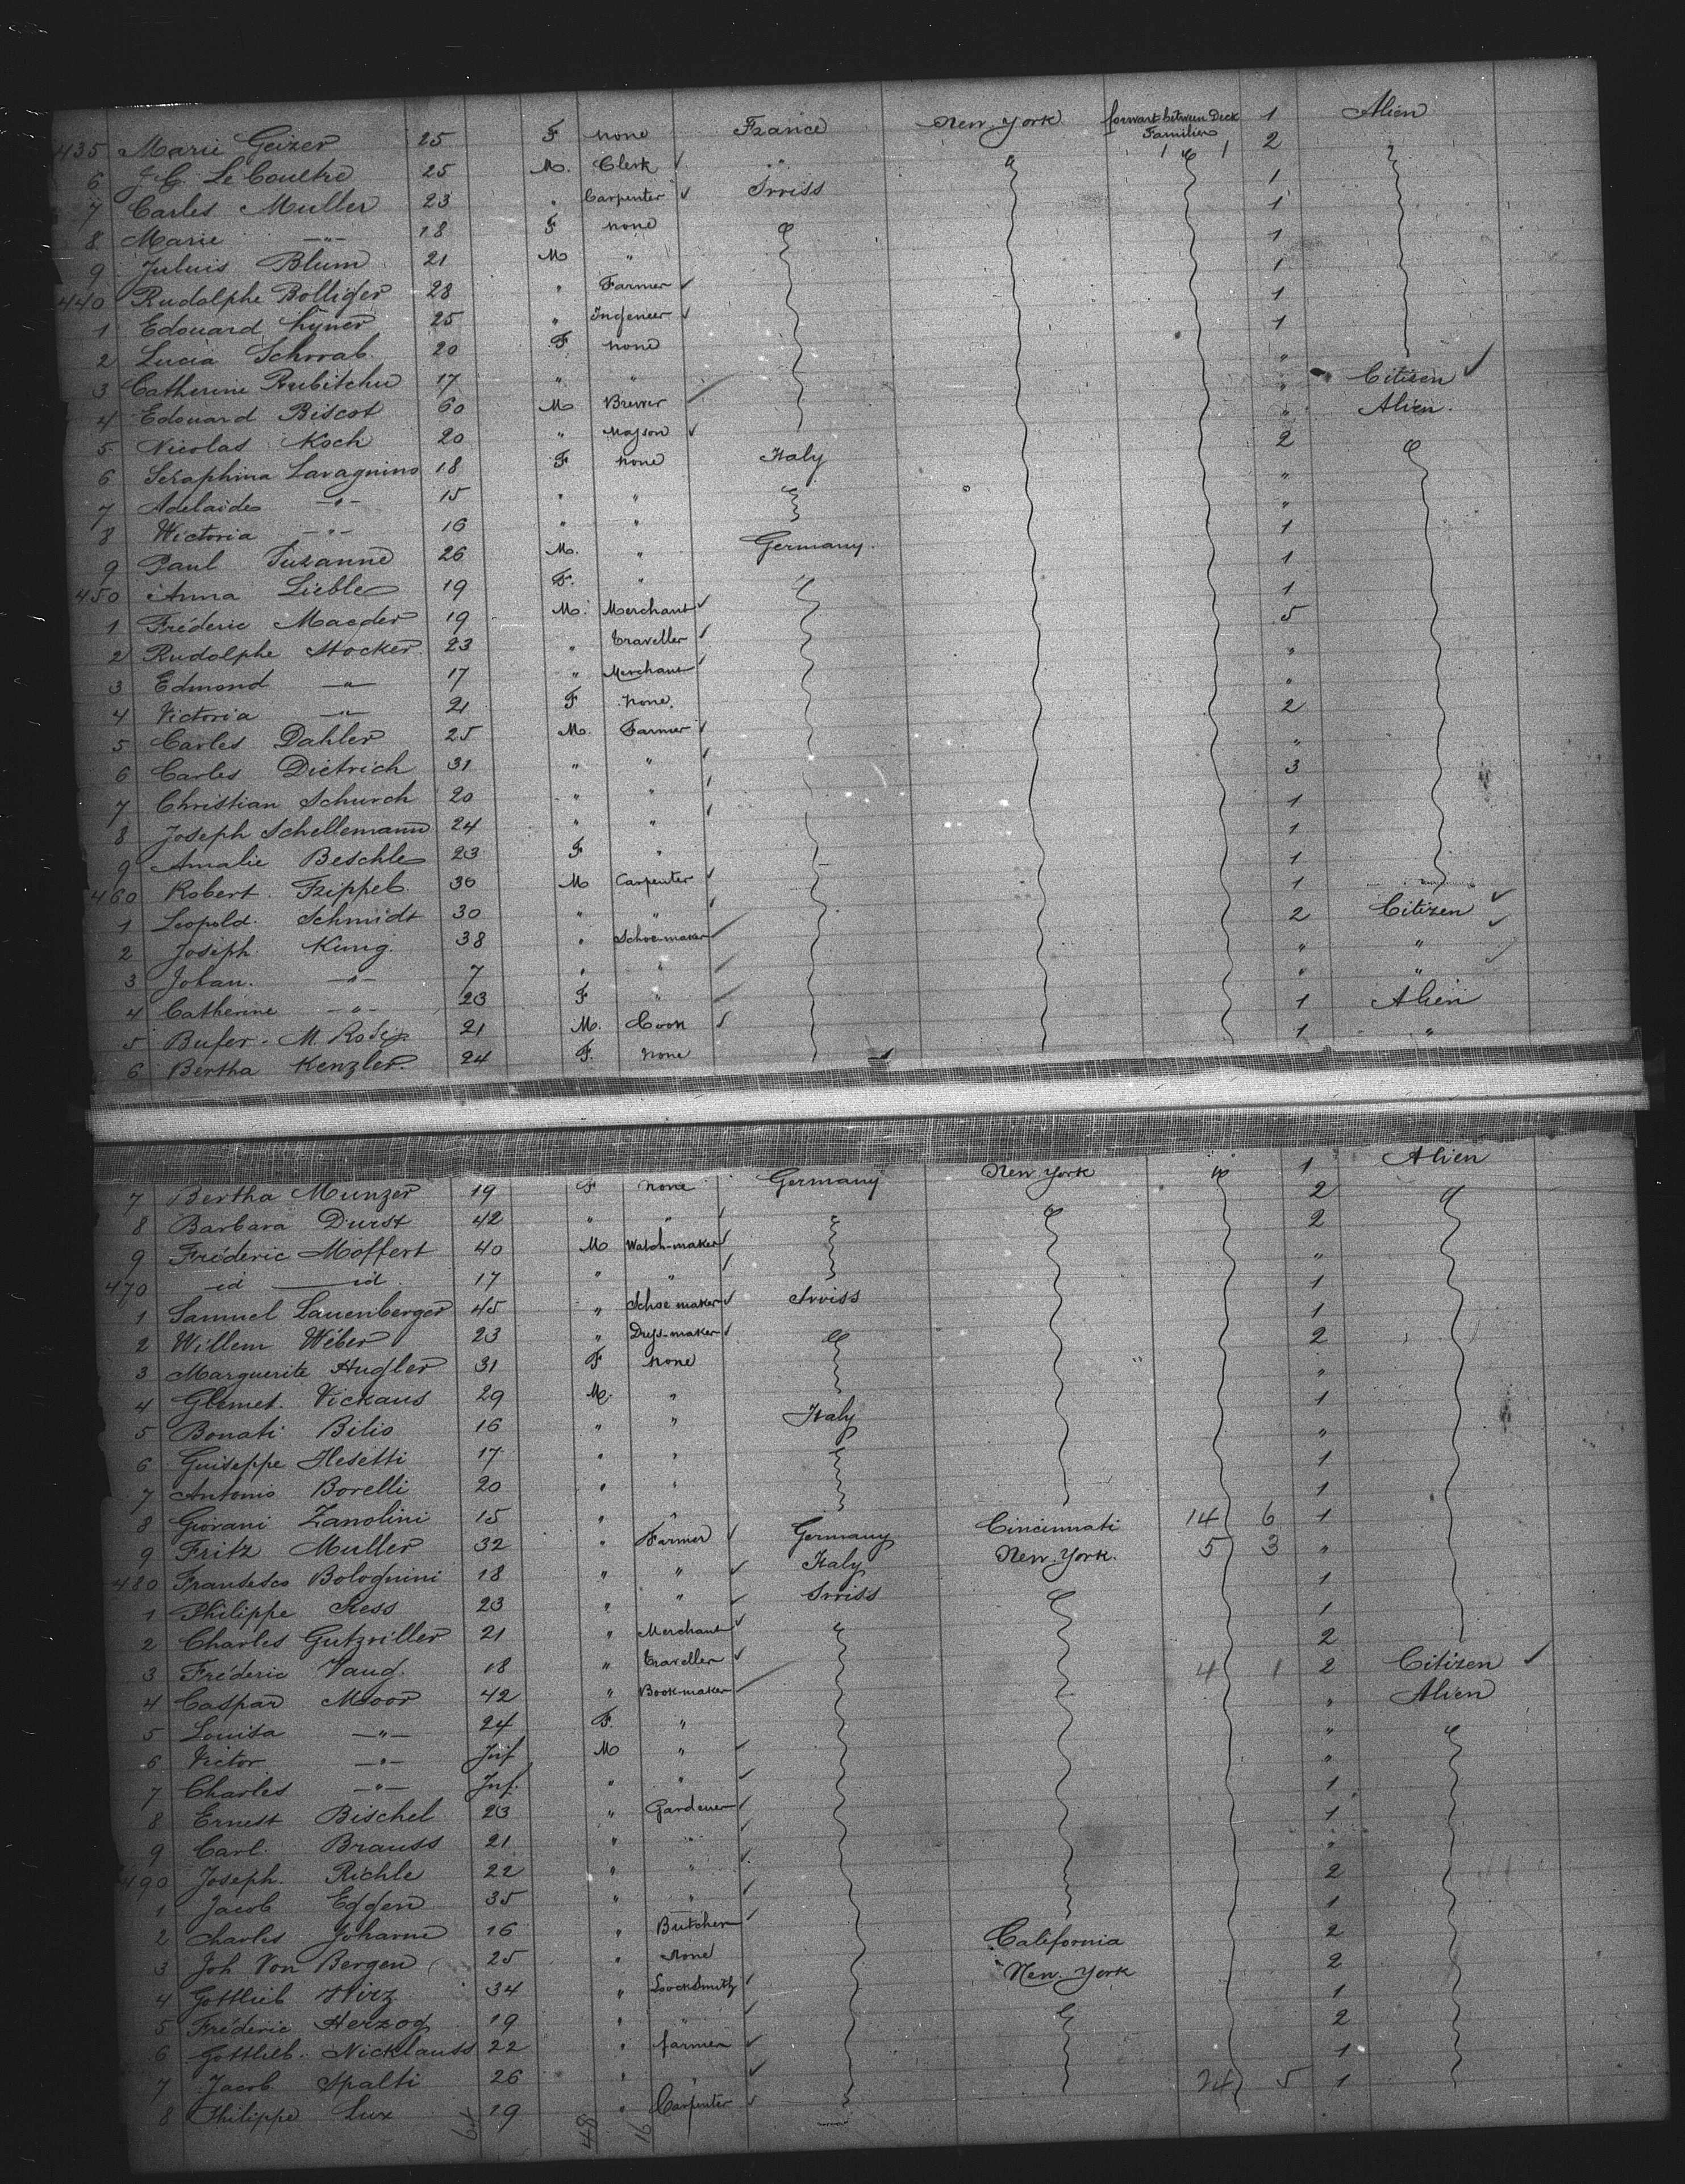 435 Marie Geizer 25 F none France New York forward between Deck Families 1 Alien
6 J. C. Le Coultre 25 M. Clerk " " " 2
7 Carles Muller 23 " Carpenter Swiss 1
8 Marie —"— 18 F none 1
9 Juluis Blum 21 M " 1
440 Rudolphe Bolliger 28 " Farmer 1
1 Edouard Kyner 25 " Ingeneer 1
2 Lucia Schwab 20 F none 1
3 Catherine Rubitchu 17 " " "
4 Edouard Biscot 60 M Brewer " Citizen
5 Nicolas Koch 20 " Masson " Alien.
6 Seraphina Lavagnino 18 F none Italy 2
7 Adelaide —"— 15 " " "
8 Wictoria —"— 16 " " "
9 Paul Suzanne 26 M. " Germany. 1
450 Anna Lieble 19 F. " 1
1 Fréderic Maeder 19 M. Merchant 1
2 Rudolphe Stocker 23 " Traveller 5
3 Edmond —"— 17 " Merchant "
4 Victoria —"— 21 F none. "
5 Carles Dahler 25 M. Farmer 2
6 Carles Dietrich 31 " " "
7 Christian Schurch 20 " " 3
8 Joseph Schellemann 24 " " 1
9 Amalie Beschle 23 F " 1
460 Robert Frippel 30 M Carpenter 1
1 Leopold Schmidt 30 " " 1
2 Joseph Kung 38 " Schoe-maker 2 Citizen
3 Johan. —"— 7 " " " "
4 Catherine —"— 23 F " " "
5 Bufer. M. 21 M. Cook 1 Alien
6 Bertha Kenzler 24 F. none 1 "
7 Bertha Munzer 19 F none Germany New York " 1 Alien
8 Barbara Durst 42 " " 2
9 Fréderic Moffert 40 M Watch-maker 2
470 id — id 17 " " "
1 Samuel Lauenberger 45 " Schoe maker Swiss 1
2 Willem Wéber 23 " Dress-maker 1
3 Marguerite Hugler 31 F none 2
4 Glemet. Vickaus 29 M. " "
5 Bonati Bilio 16 " " Italy 1
6 Guiseppe Hesetti 17 " " "
7 Antonio Borelli 20 " " 1
8 Giovani Zanolini 15 " " 1
9 Fritz Muller 32 " Farmer Germany Cincinnati 14 6 1
480 Fransesco Bolognini 18 " " Italy New York. 5 3 "
1 Philippe Hess 23 " " Swiss 1
2 Charles Gutzviller 21 " Merchant 1
3 Fréderic Vaug. 18 " Traveller 2
4 Caspar Moor 42 " Book-maker 4 1 2 Citizen
5 Louisa —"— 24 F. " " Alien
6 Victor —"— Inf M " "
7 Charles —"— Inf. " " "
8 Ernest Bischel 23 " Gardener 1
9 Carl. Brauss 21 " " 1
490 Joseph. Richle 22 " " "
1 Jacob Eggen 35 " " 2
2 Charles Johanne 16 " Butcher 1
3 Joh. Von Bergen 25 " None California 2
4 Gottlieb Hirz 34 " LockSmith New York 2
5 Fréderic Herzog 19 " " 1
6 Gottlieb. Nicklauss 22 " farmer 2
7 Jacob Spalti 26 " " 1
8 Philippe Lux 19 " Carpenter 24 5 1
48 16